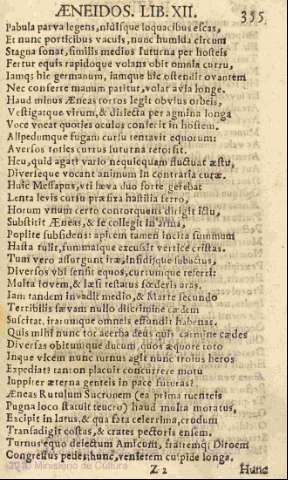 ÆNEIDOS. LIB. XII. 355.
Pabula parva legens, nidisque loquacibus escas,
Et nunc porticibus vacuis, nunc humida circum
Stagna sonat, similis medios Juturna per hosteis
Fertur equis rapidoque volans obit omnia curru,
Iamq; hic germanum, iamque hic ostendit ovantem
Nec conferre manum patitur, volat avia longe.
Haud minus Æneas tortos legit obvius orbeis,
Vestigatque virum, & disiecta per agmina longa
Voce vocat quoties oculos coniecit in hostem.
Alipedumque fugam cursu tentavit equorum:
Aversos toties currus Iuturna retorsit.
Heu, quid agat? vario nequicquam fluctuat æstu,
Diverseque vocant animum in contraria curæ.
Huic Messapus, uti læva duo forte gerebat
Lenta levis cursu præfixa hastilia ferro,
Horum unum certo contorquens dirigit ictu,
Substitit Æneas, & se collegit in arma,
Poplite subsidens: apicem tamen incita summum
Hasta tulit, summasque excussit vertice cristas.
Tum vero assurgunt iræ, insidiisque subactus,
Diversos ubi sensit equos, currumque referri:
Multa Iovem, & læsi testatus fœderis aras,
Iam tandem invadit medio, & Marte secundo
Terribilis sævam nullo discrimine cædem
Suscitat, irarumque omneis effundit habenas.
Quis mihi nunc tot acerba deus quis carmine cædes
Diversas obitumque ducum, quos æquore toto
Inque vicem nunc turnus agit nunc troius heros
Expediat? tanton placuit concurrere motu
Iuppiter æterna genteis in pace futuras?
Æneas Rutulum Sucronem (ea prima ruenteis
Pugna loco statuit teucro) haud multa moratus,
Excipit in latus, & qua fata celerrima, crudum
Transadigit costas, & crates pectoris ensem.
Turnus equo deiectum Amicum, fratremq; Diorem
Congressus pedes, hunc, venientem cuspide longa.
Z 2 Hunc
Ministerio de Cultura